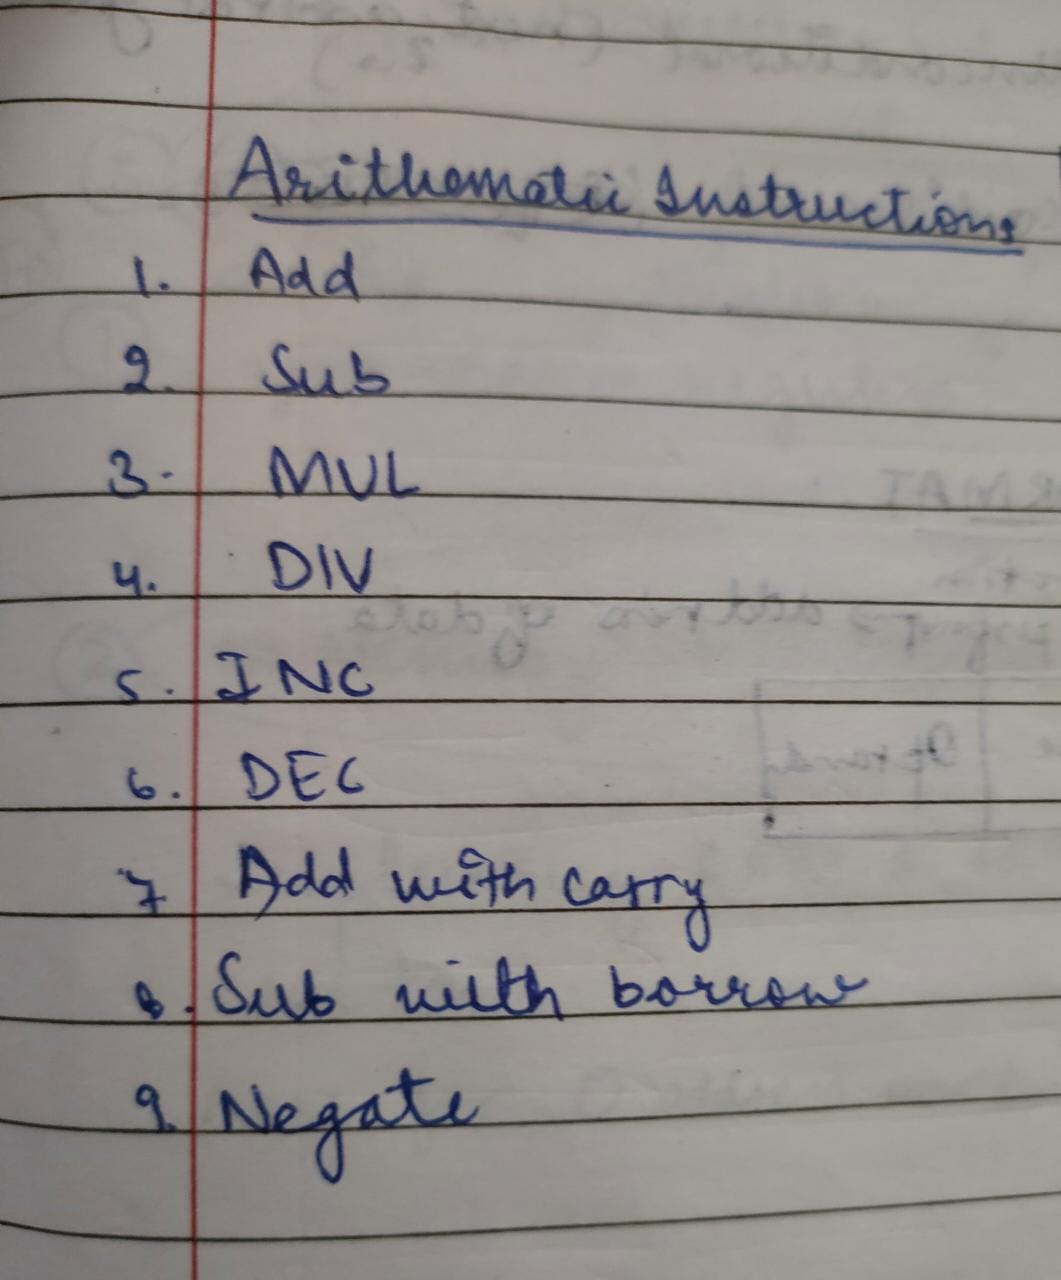 Arithematic Instructions
1. Add
2. Sub
3. MUL
4. DIV
5. INC
6. DEC
7 Add with carry
8. Sub with borrow
9. Negate